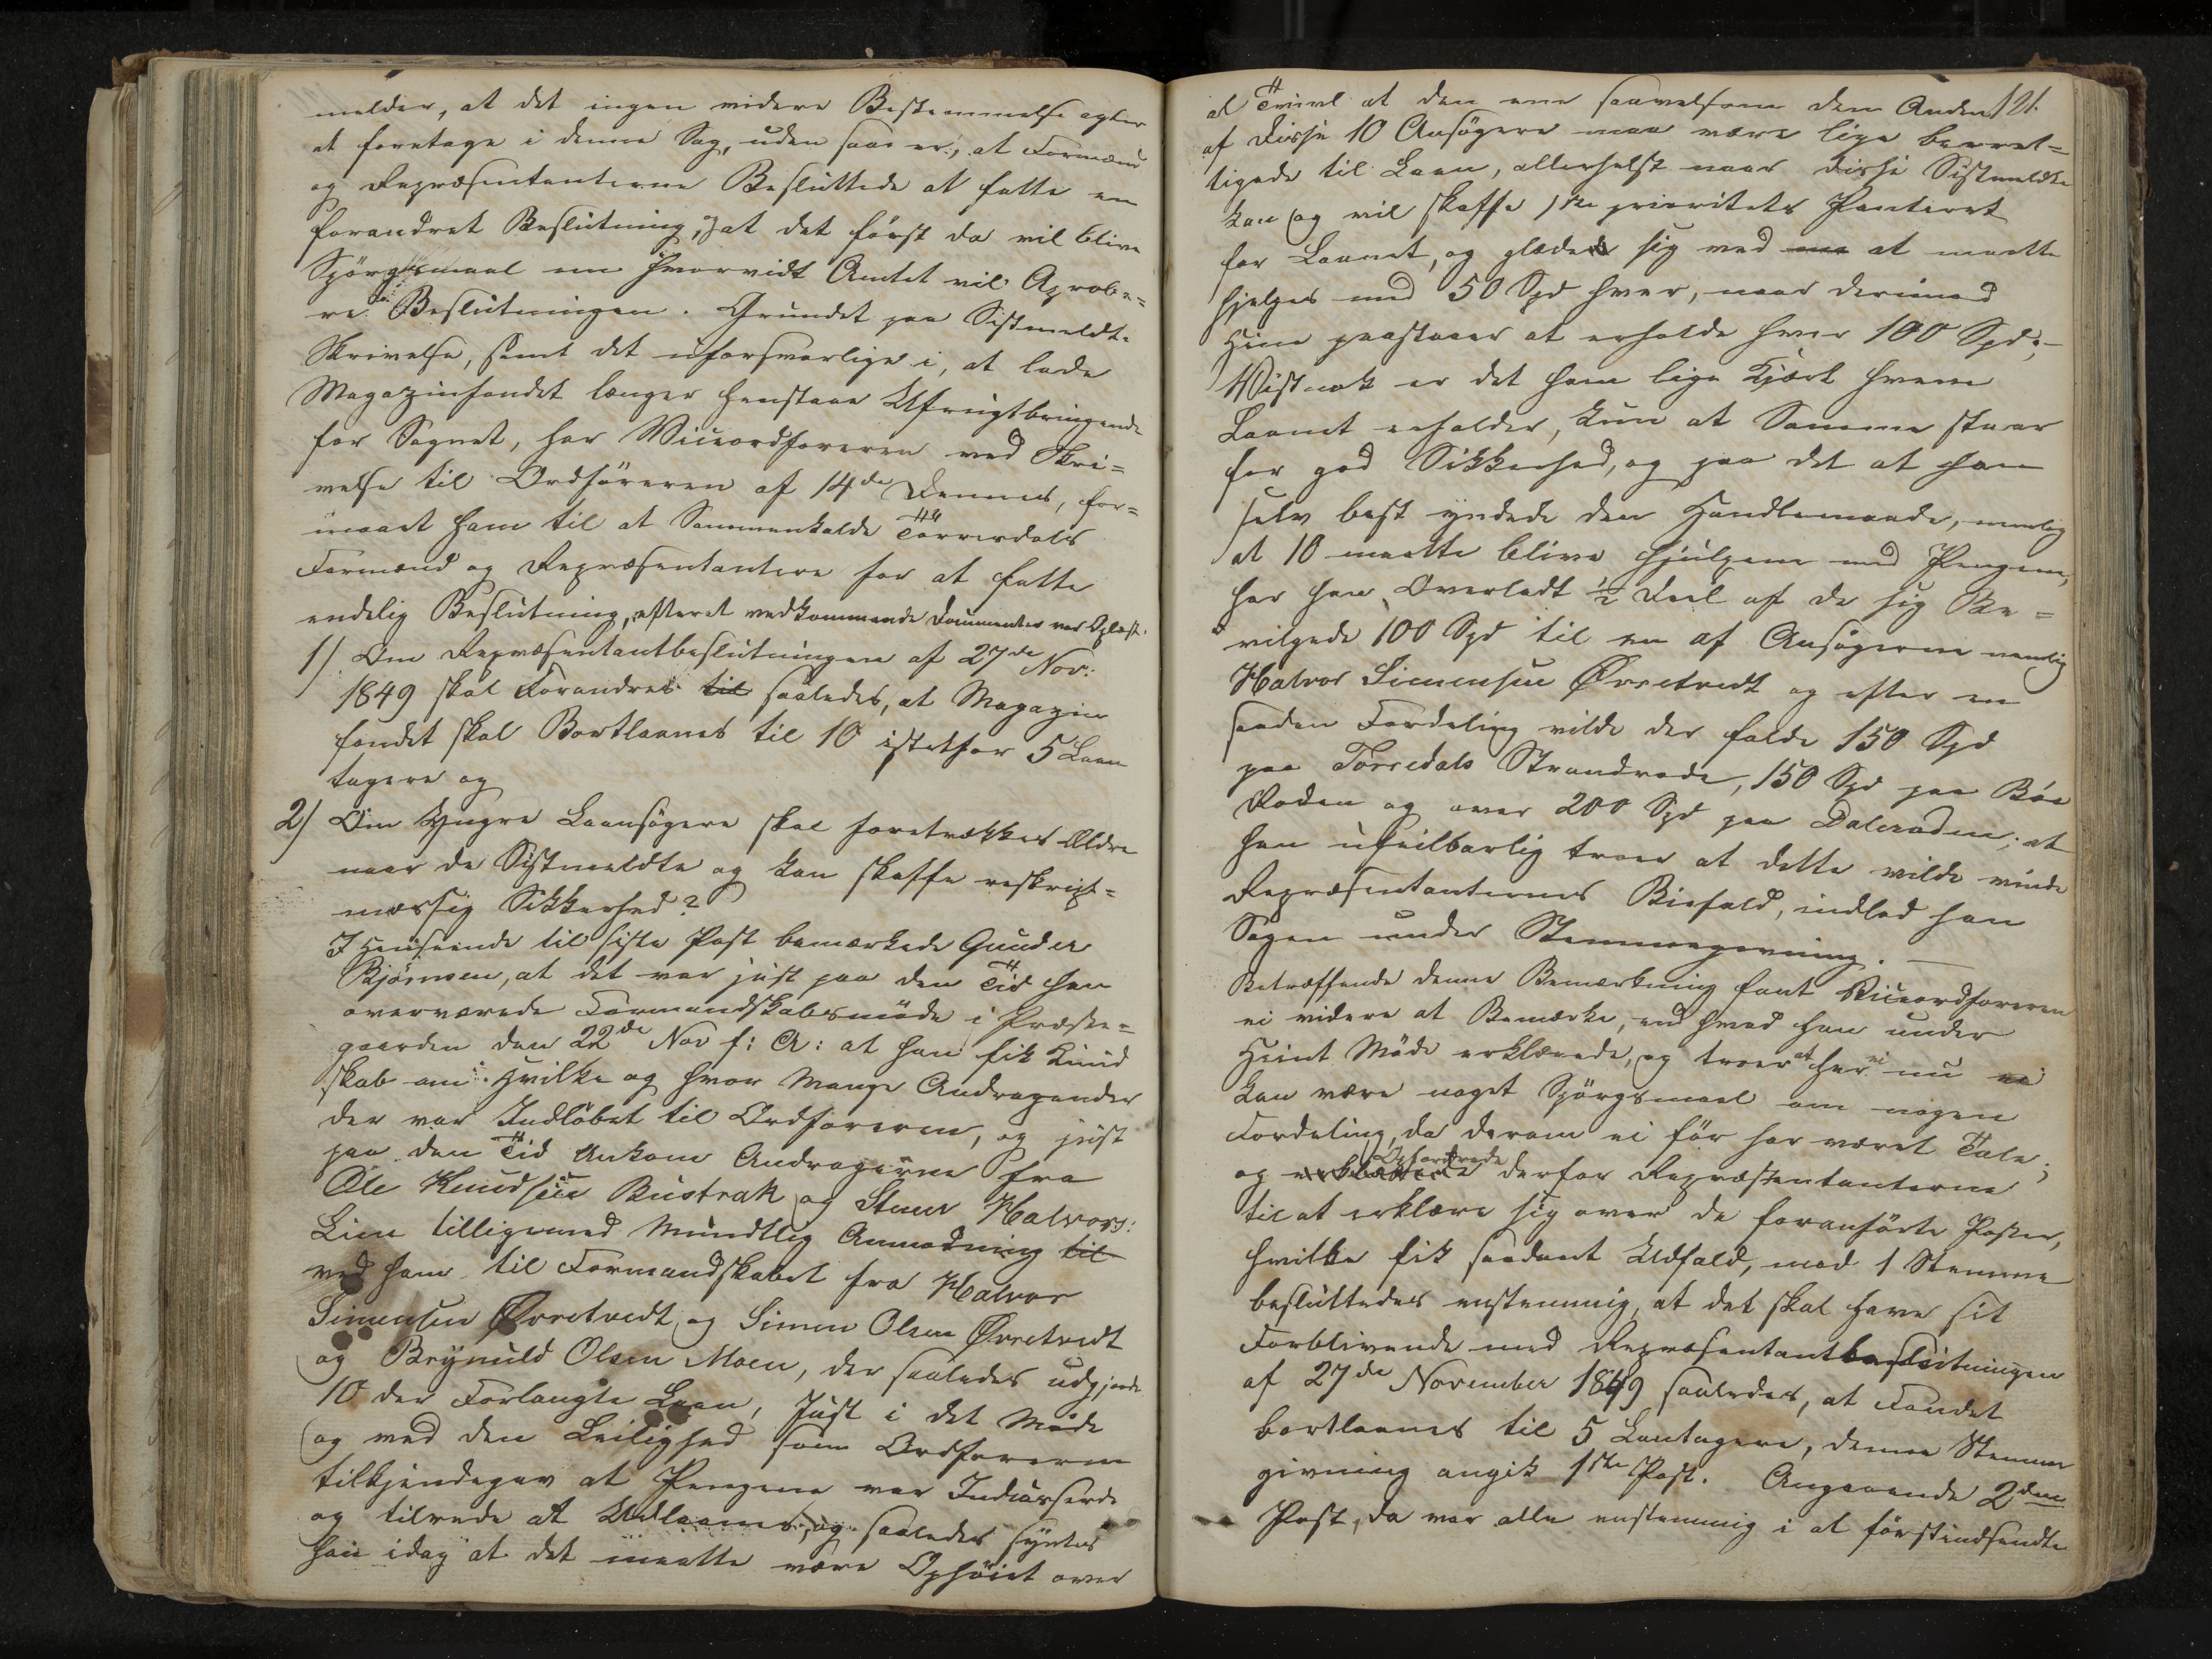 melder, at det ingen videre Bestemmelse agter
at foretage i denne Sag, uden saa er, at Formænd
og Repræsentanterne Besluttede at fatte en
forandret Beslutning, at det først da vil blive
Spørgsmaal om hvorvidt Amtet vil Aprobe-
re Beslutningen. Grundet paa Sistmeldte
Skrivelse, samt det uforsvarlige i, at lade
Magazinfondet længer henstaae Ufrugtbringende
for Sognet, har Viceordføreren ved Skri-
velse til Ordføreren af 14de Dennes, for-
maaet ham til at Sammenkalde Tørrisdals
Formænd og Repræsentantere for at fatte
endelig Beslutning, efteret vedkommende Documenter var Oplæst.
1) Om Repræsentantbeslutningen af 27de Nov:
1849 skal Forandres til saaledes, at Magazin
fondet skal Bortlaanes til 10 istetfor 5 Laan
tagere og
2) Om Yngre Laansøgere skal foretrækkes Ældre
naar de Sistmeldte og kan skaffe reskript-
mæssig Sikkerhed?
I Henseende til siste Post bemærkede Gunder
Bjørnsen, at det var just paa den Tid han
overværede Formandskabsmøde i Præste-
gaarden den 22de Nov f: A: at han fik Kund
skab om Hvilke og hvor Mange Andragender
der var Indløbet til Ordføreren, og just
paa den Tid Ankom Andragerne fra
Ole Knudsen Bustrak og Halvors:
Lien tilligemed Mundtlig Anmodning til
ved ham til Formandskabet fra Halvor
Simensen Øvretvedt og Simen Olsen Øvretvedt
og Brynuld Olsen Moen, der saaledes udgjorde
10 der Forlangte Laan, Just i det Møde
og ved den Leilighed som Ordføreren
tilkjendegav at Pengene var Indcasserede
og tilrede at Udlaanes, og saaledes syntes
han idag at det maatte være Ophøiet over
121.
al Tvivl at den ene saavelsom den Anden
af disse 10 Ansøgere maa være lige beret-
tigede til Laan, allerhelst naar disse Sistmeldte
kan og vil skaffe 1ste prioritets Panteret
for Laanet, og glæde sig ved at maatte
hjelpes med 50 Spd hver, naar derimod
Hine paastaaer at erholde hver 100 Spd;-
Vistnok er det ham lige Kjært hvem
Laanet erholder, kun at Samme staar
for god Sikkerhed, og paa det at han
selv best yndede den Handlemaade, nemlig
at 10 maatte blive hjulpene med Pengene,
har han Overladt ½ Deel af de sig Be-
vilgede 100 Spd til en af Ansøgerne nemlig
Halvor Simensen Øvretvedt og efter en
saadan Fordeling vilde der falde 150 Spd
paa Tørredals Strandrode, 150 Spd paa Böe
Roden og over 200 Spd paa Daleroden; at
han ufeilbarlig troer at dette vilde vinde
Repræsentanternes Biefald, indlod han
Sagen under Stemmegivning. —
Betræffende denne Bemærkning fant Viceordføreren
ei videre at Bemærke, end hvad han under
Hiint Møde erklærede, og troer at her ei nu ei
kan være noget Spørgsmaal om nogen
Fordeling, da derom ei før har været Tale;
og erklærede Opfordrede derfor Repræsentanterne
til at erklære sig over de foranførte Poster,
hvilke fik saadant Udfald, mod 1 Stemme
besluttedes enstemmig, at det skal have sit
Forblivende med Repræsentantbeslutningen
af 27de November 1849 saaledes, at Fondet
bortlaanes til 5 Lantagere, denne Stemme
givning angik 1ste Post. Angaaende 2den
Post, da var alle enstemmig i at førstindsendte